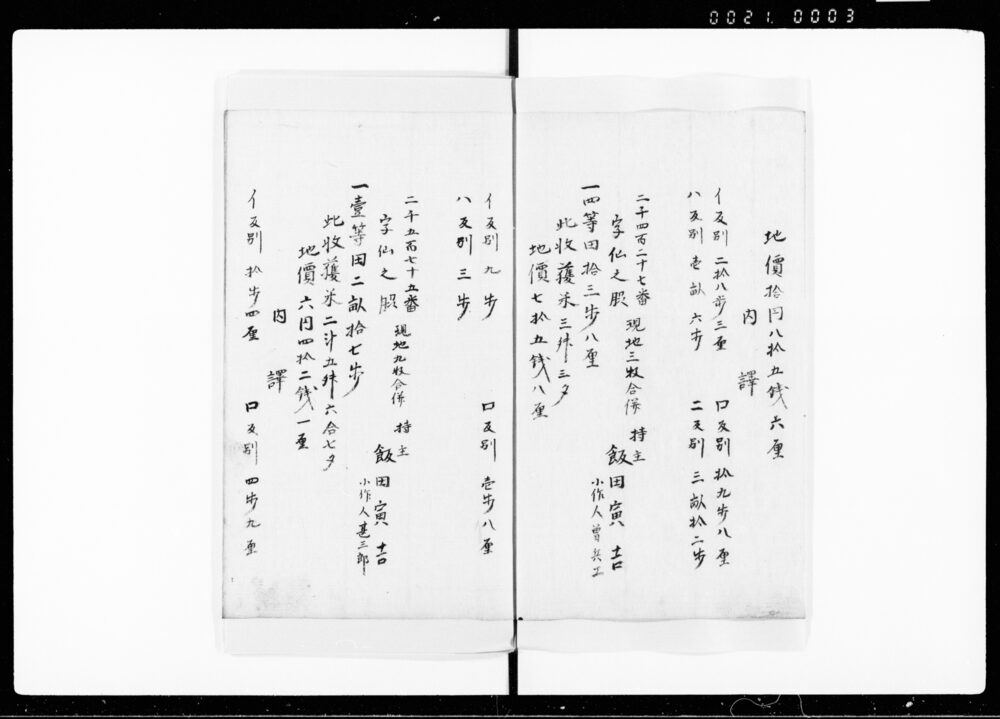 0021. 0003
地價拾円八拾五錢六厘
内譯
イ反別 二拾八歩三厘 ロ反別 拾九歩八厘
ハ反別 壱畝六歩 ニ反別 三畝拾二歩
二千四百二十七番 現地三枚合併 持主
字仙之 飯田寅吉
一四等田拾三歩八厘 小作人
此收獲米三舛三夕
地價七拾五錢八厘
イ反別 九歩 ロ反別 壱歩八厘
ハ反別 三歩
二千五百七十五番 現地九枚合併 持主
字仙之 飯田寅吉
一壹等田二畝拾七歩 小作人甚三郎
此收獲米二斗五舛六合七夕
地價六円四拾二錢一厘
内譯
イ反別 拾歩四厘 ロ反別 四歩九厘